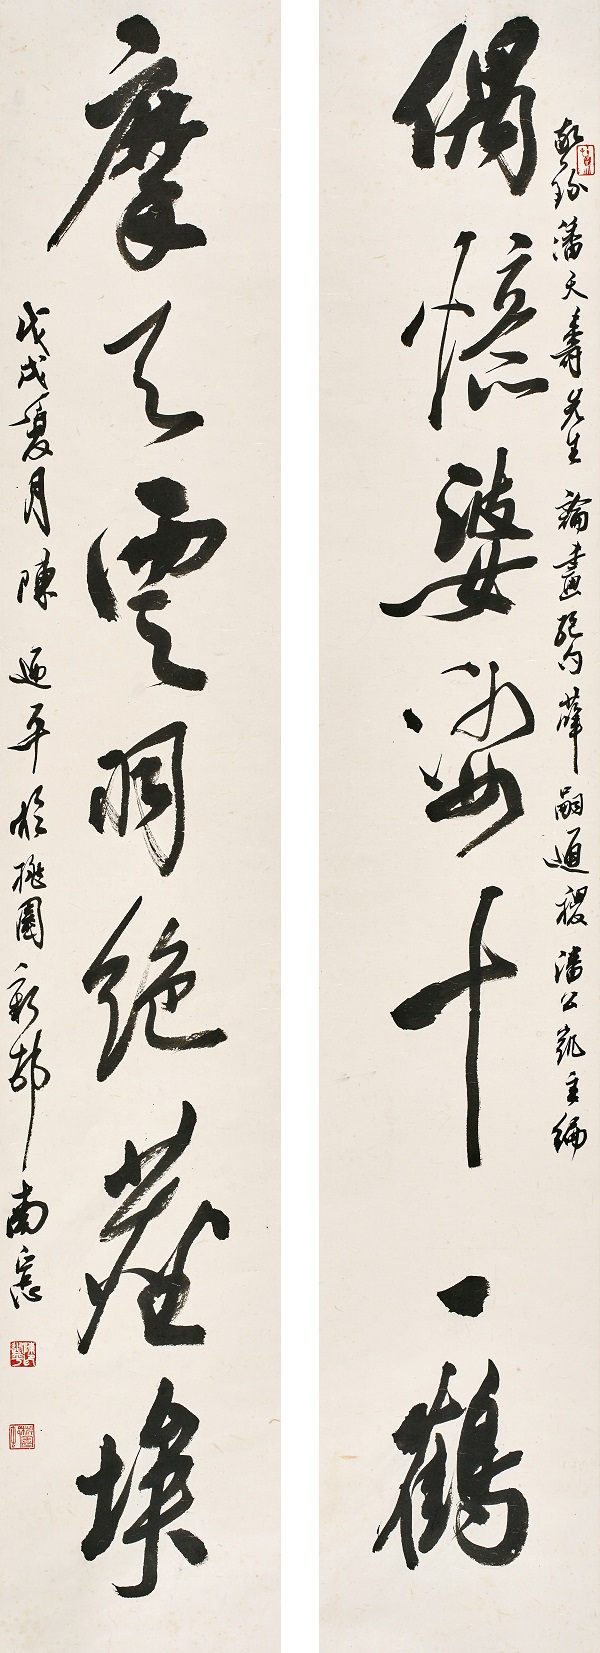 偶憶婆娑十一鶴
敬錄潘天壽先生論畫絕句薛嗣通稷潘公凱主編
摩天雲羽絕塵埃
戊戌夏月陳迺平於桃園新都南窓